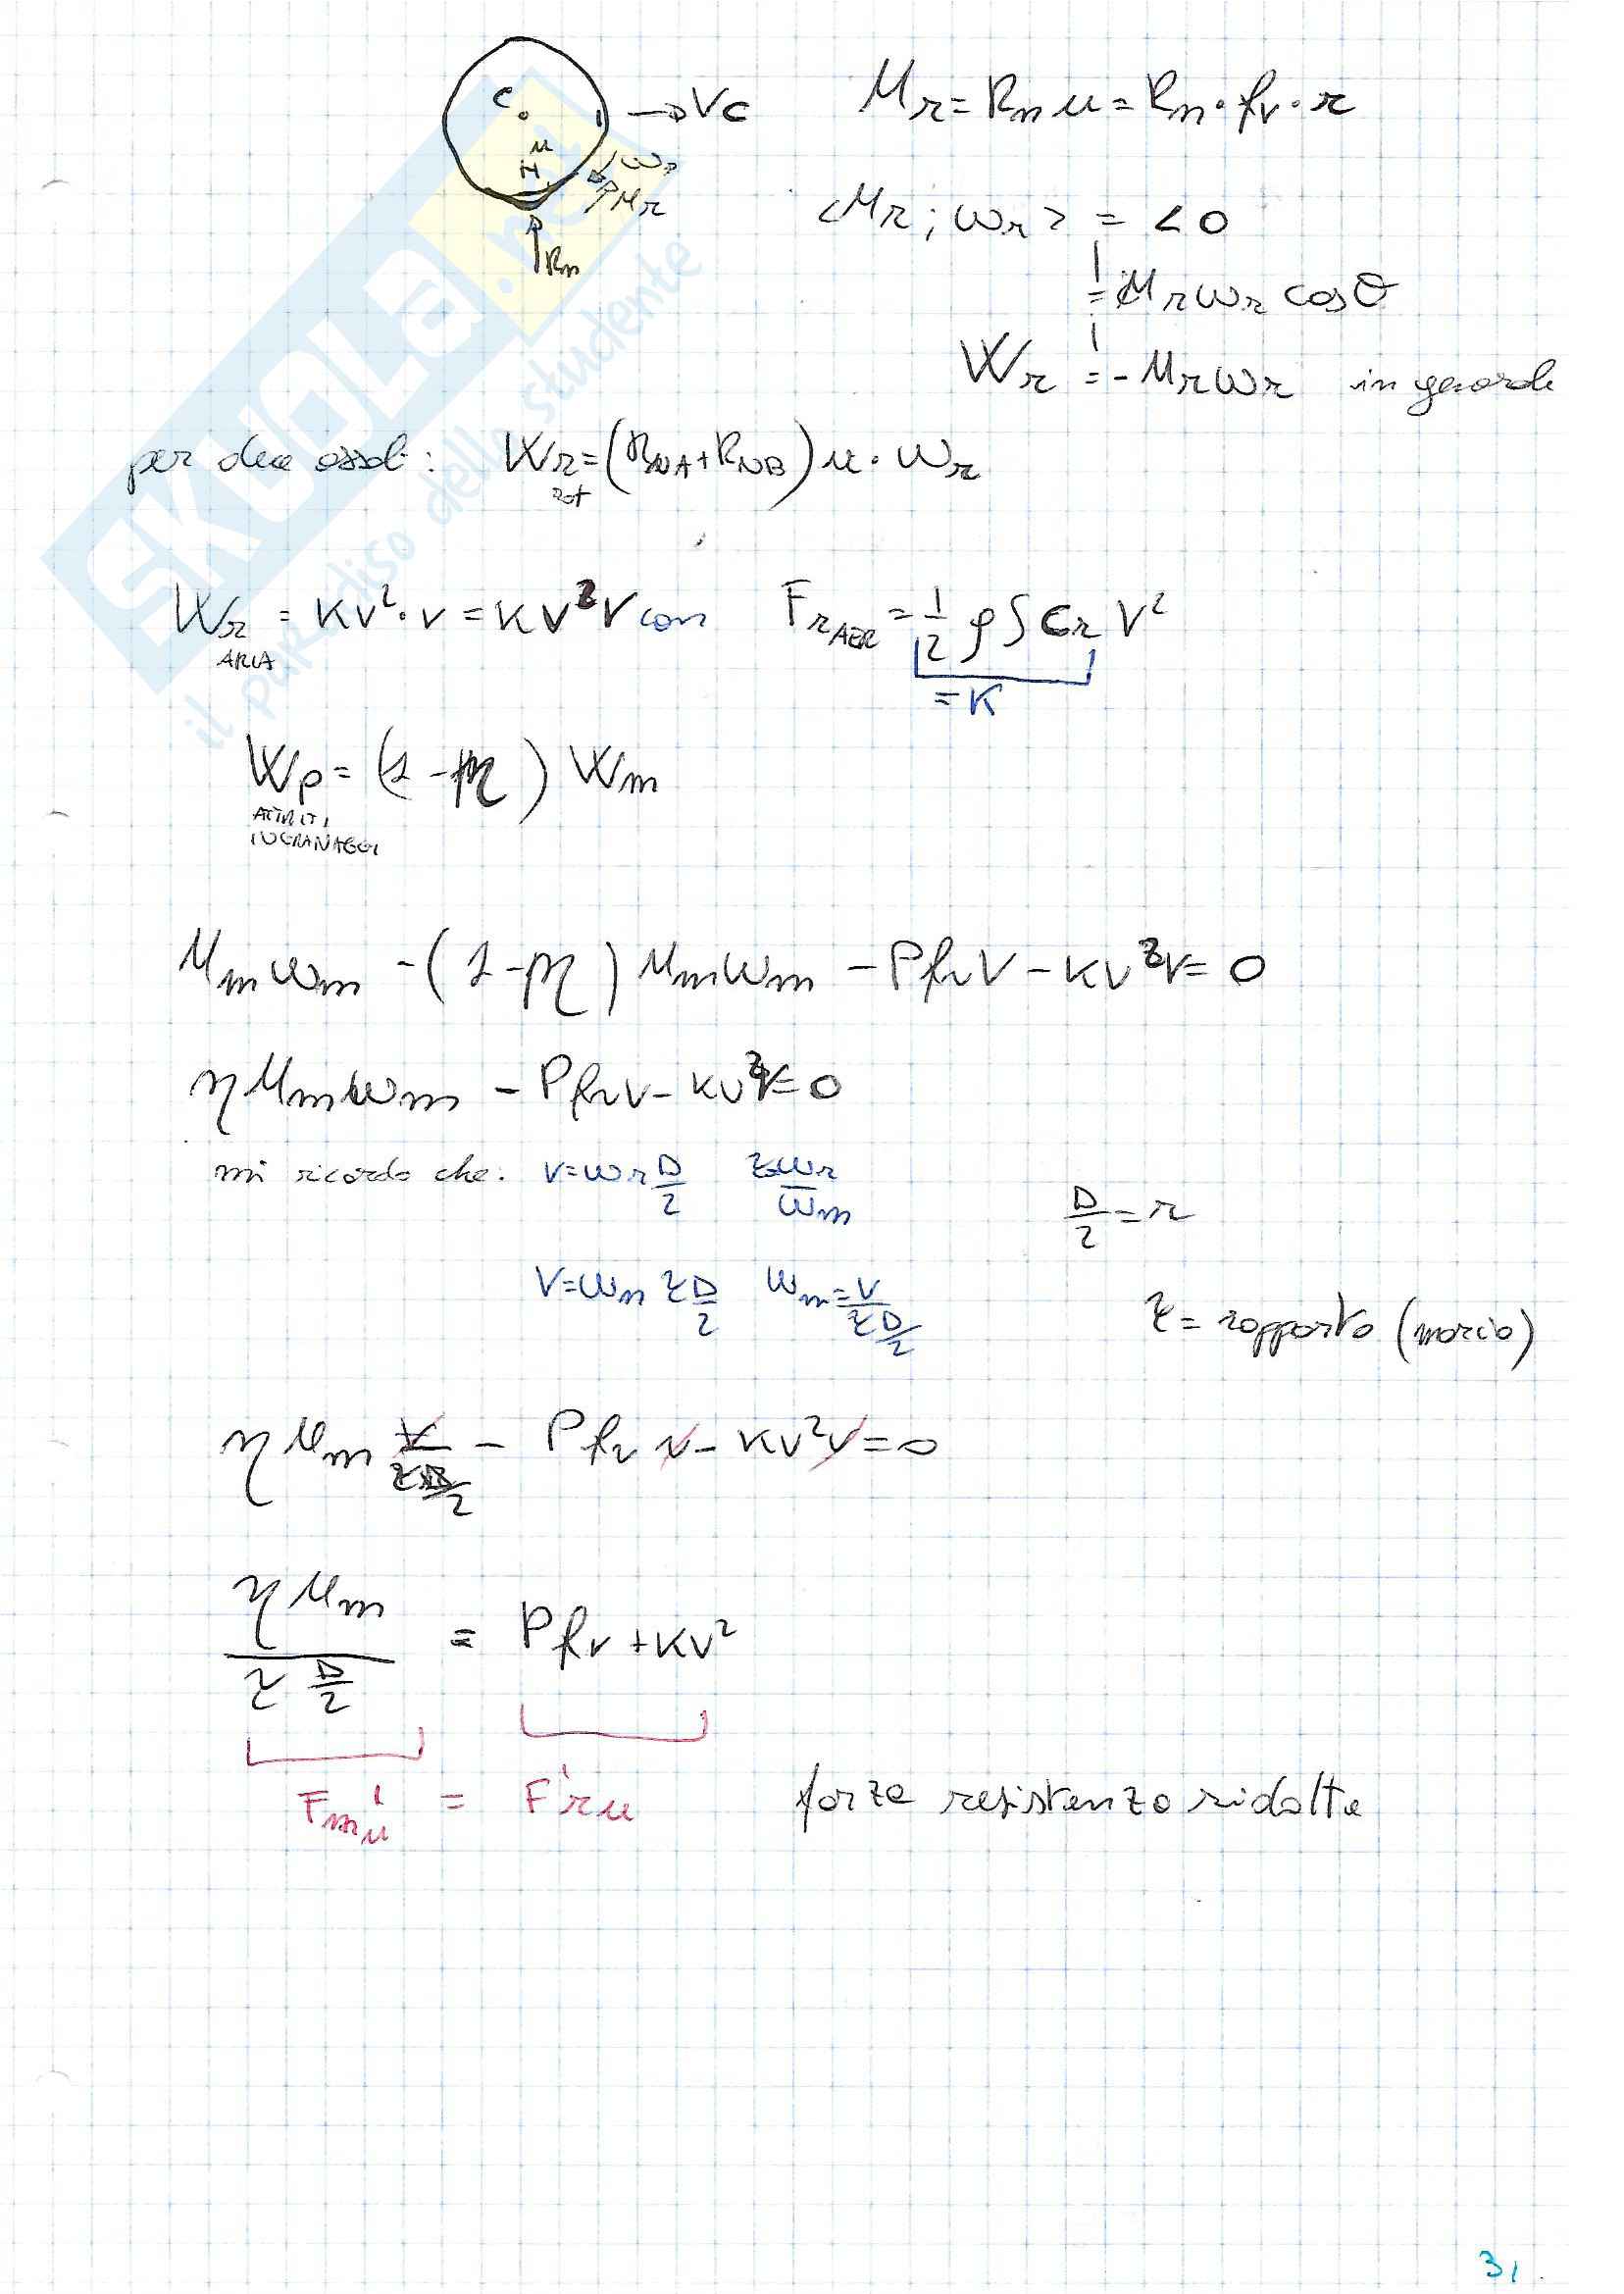 C
→ Vc
Mr = Rn u = Rn · fv · r
u
ωr
Mr
Rn
<Mr ; ωr> = < 0
= Mr ωr cos θ
Wr = - Mr ωr in generale
per due assi : Wr rot = (RNA + RNB) u · ωr
Wr ARIA = KV² · V = KV²V con Fr AER = 1/2 ρ S Cr V²
= K
Wp = (1 - η) Wm
ATTRITI
INGRANAGGI
Mm ωm - (1 - η) Mm ωm - P fv V - KV²V = 0
η Mm ωm - P fv V - KV²V = 0
mi ricordo che: V = ωr D/2 τ = ωr/ωm
D/2 = r
V = ωm τ D/2 ωm = V/(τ D/2)
τ = rapporto (marcia)
η Mm V/(τ D/2) - P fv V - KV²V = 0
η Mm / (τ D/2) = P fv + KV²
F'm u = F'r u forze resistenza ridotte
31
SKUOLA.net
il paradiso dello studente